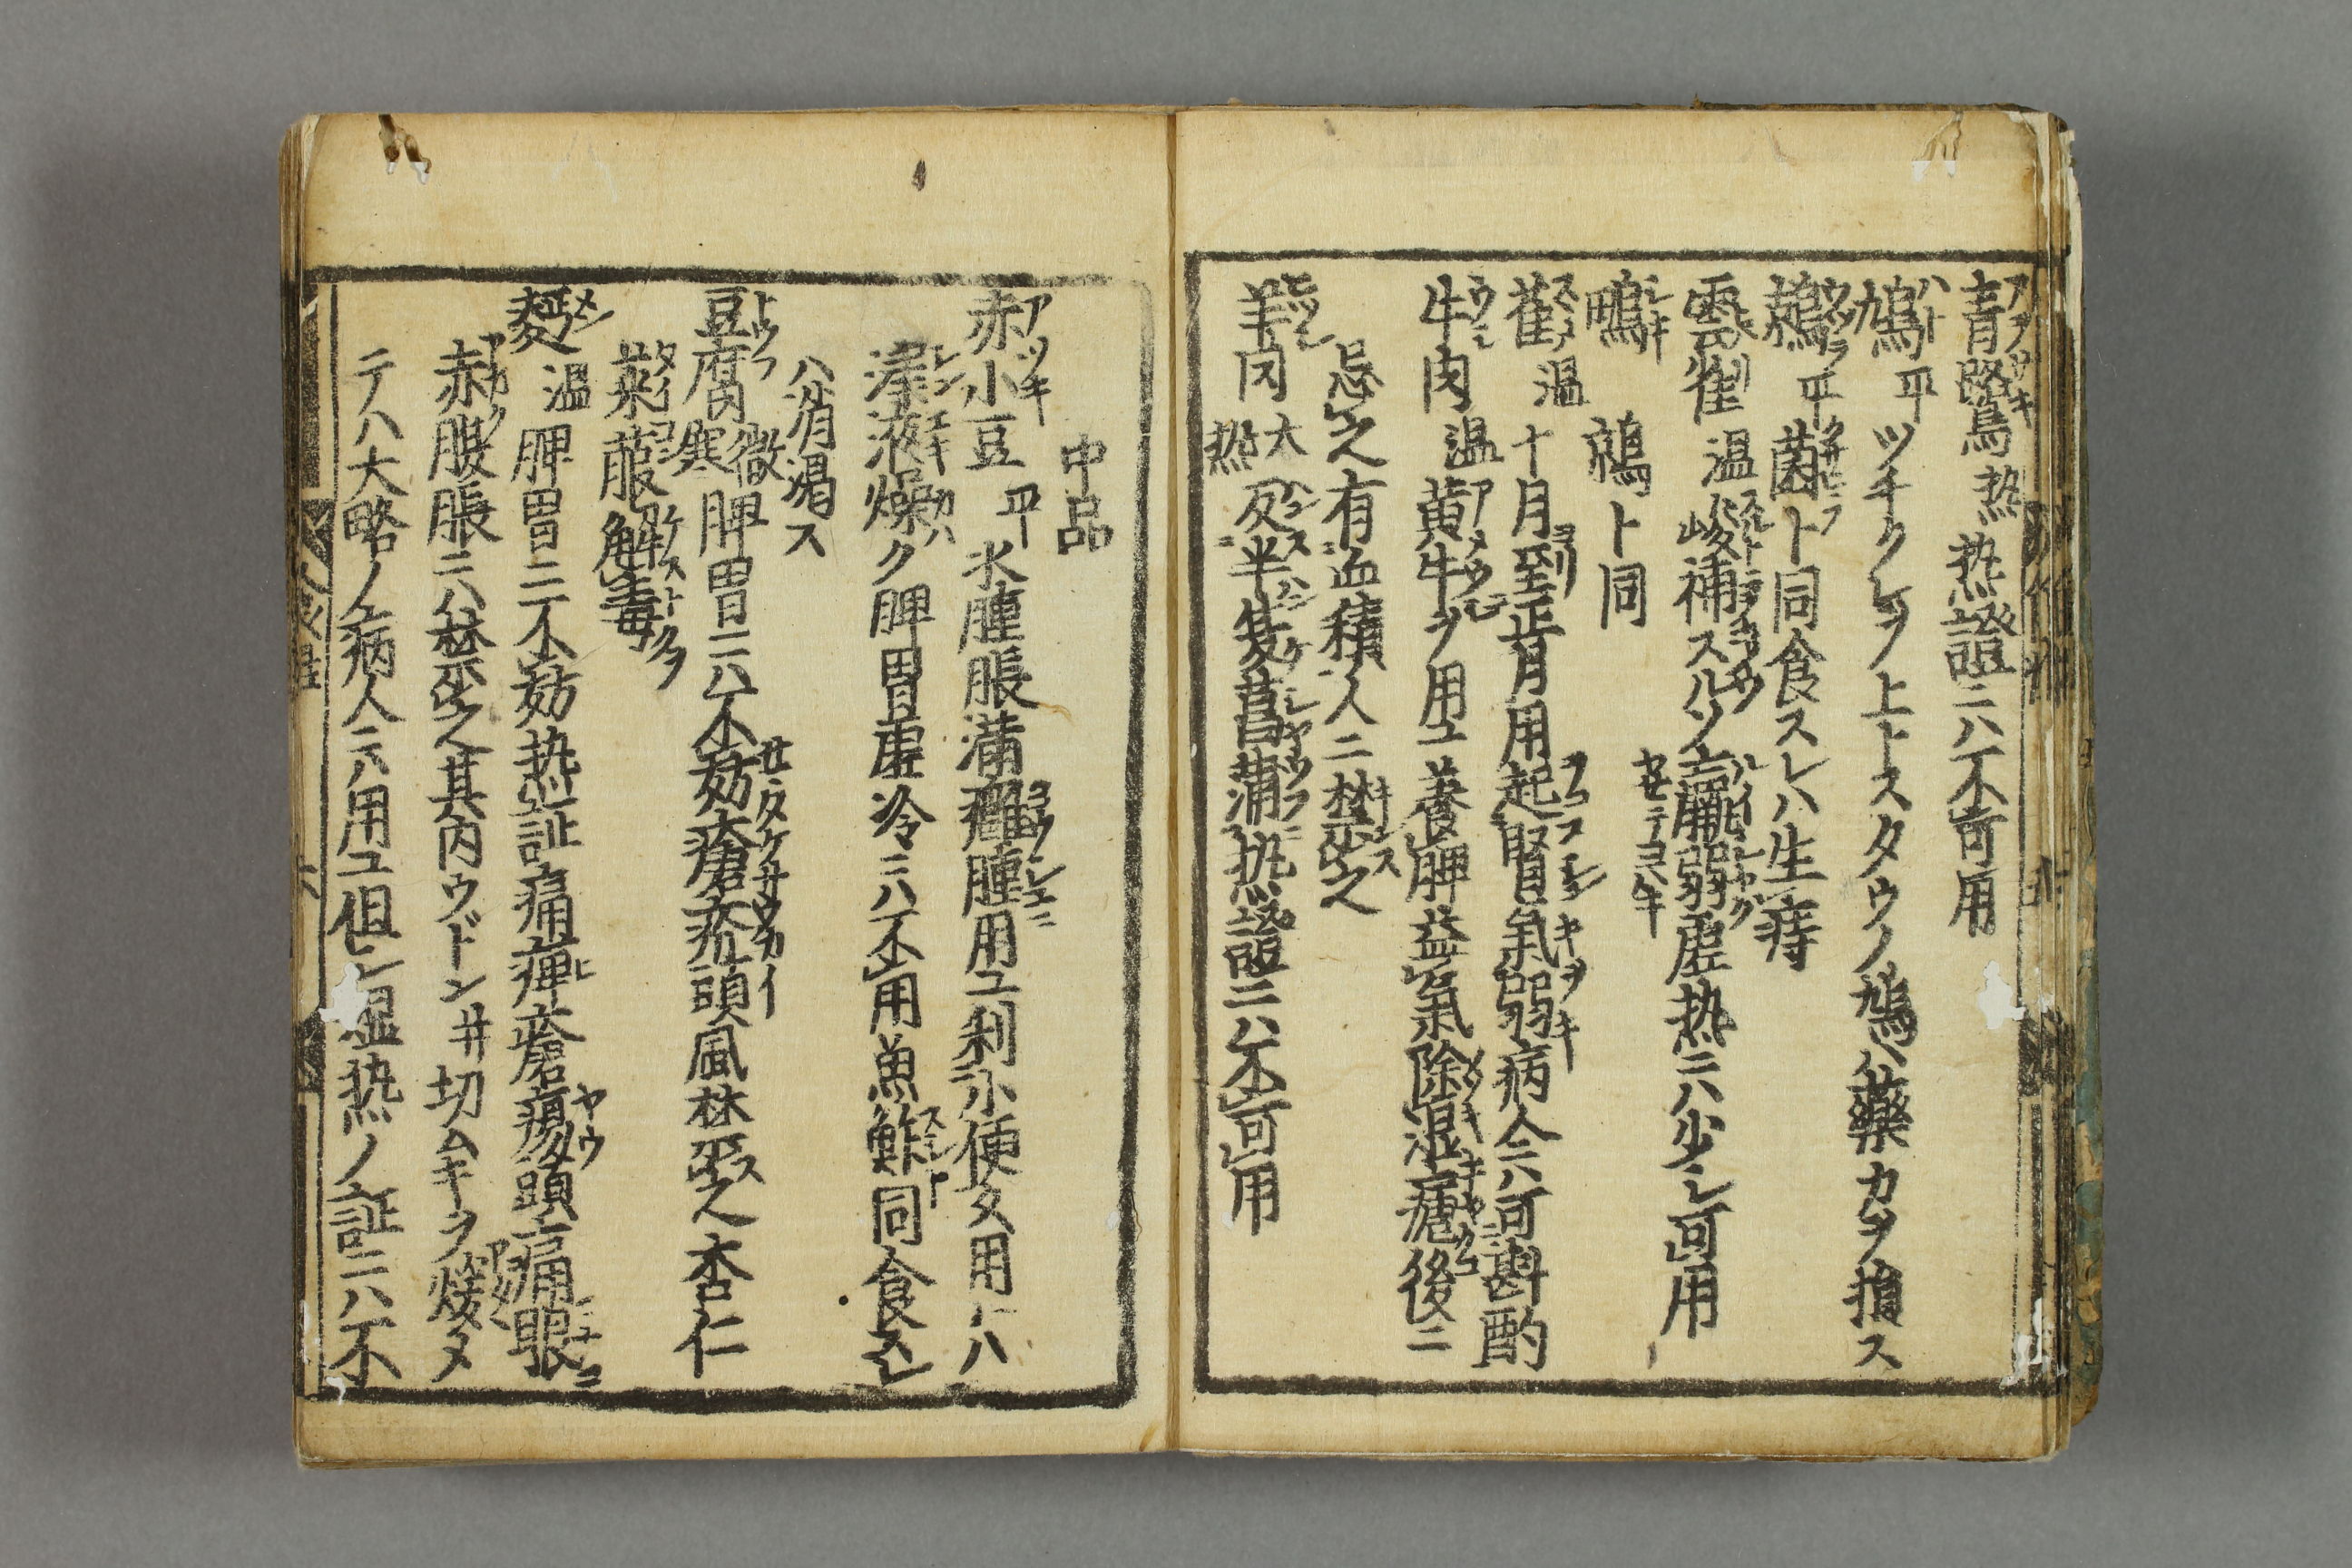 青鷺 热 热證ニハ不可用
鳩 平 ツチクレヲ上トスタウノ鳩ハ藥カヲ損ス
鶉 平 菌ト同食スレハ生痔
雲雀 温 峻補スルソ羸弱虚热ニハ少シ可用
鴫 鶉ト同
雀 温 十月到正月用起腎氣弱病人ニハ可斟酌
牛肉 温 黄牛ヲ用ユ養脾益氣除湿瘧後ニ
忌之有血積人ニ禁之
羊肉 大热 反半夏菖蒲热證ニハ不可用
中品
赤小豆 平 水腫脹満癰腫用ユ利小便久用レハ
津液燥ク脾胃虚冷ニハ不用魚鮓同食スレ
ハ消渇ス
豆腐 微寒 脾胃ニハ不妨瘡疥頭風禁之杏仁
菜菔解毒
麪 温 脾胃ニ不妨热証痛痺瘡瘍頭痛眼
赤腹脹ニハ禁之其内ウドン井切ムギヲ煖メ
テハ大略ノ病人ニハ用ユ但シ湿热ノ証ニハ不